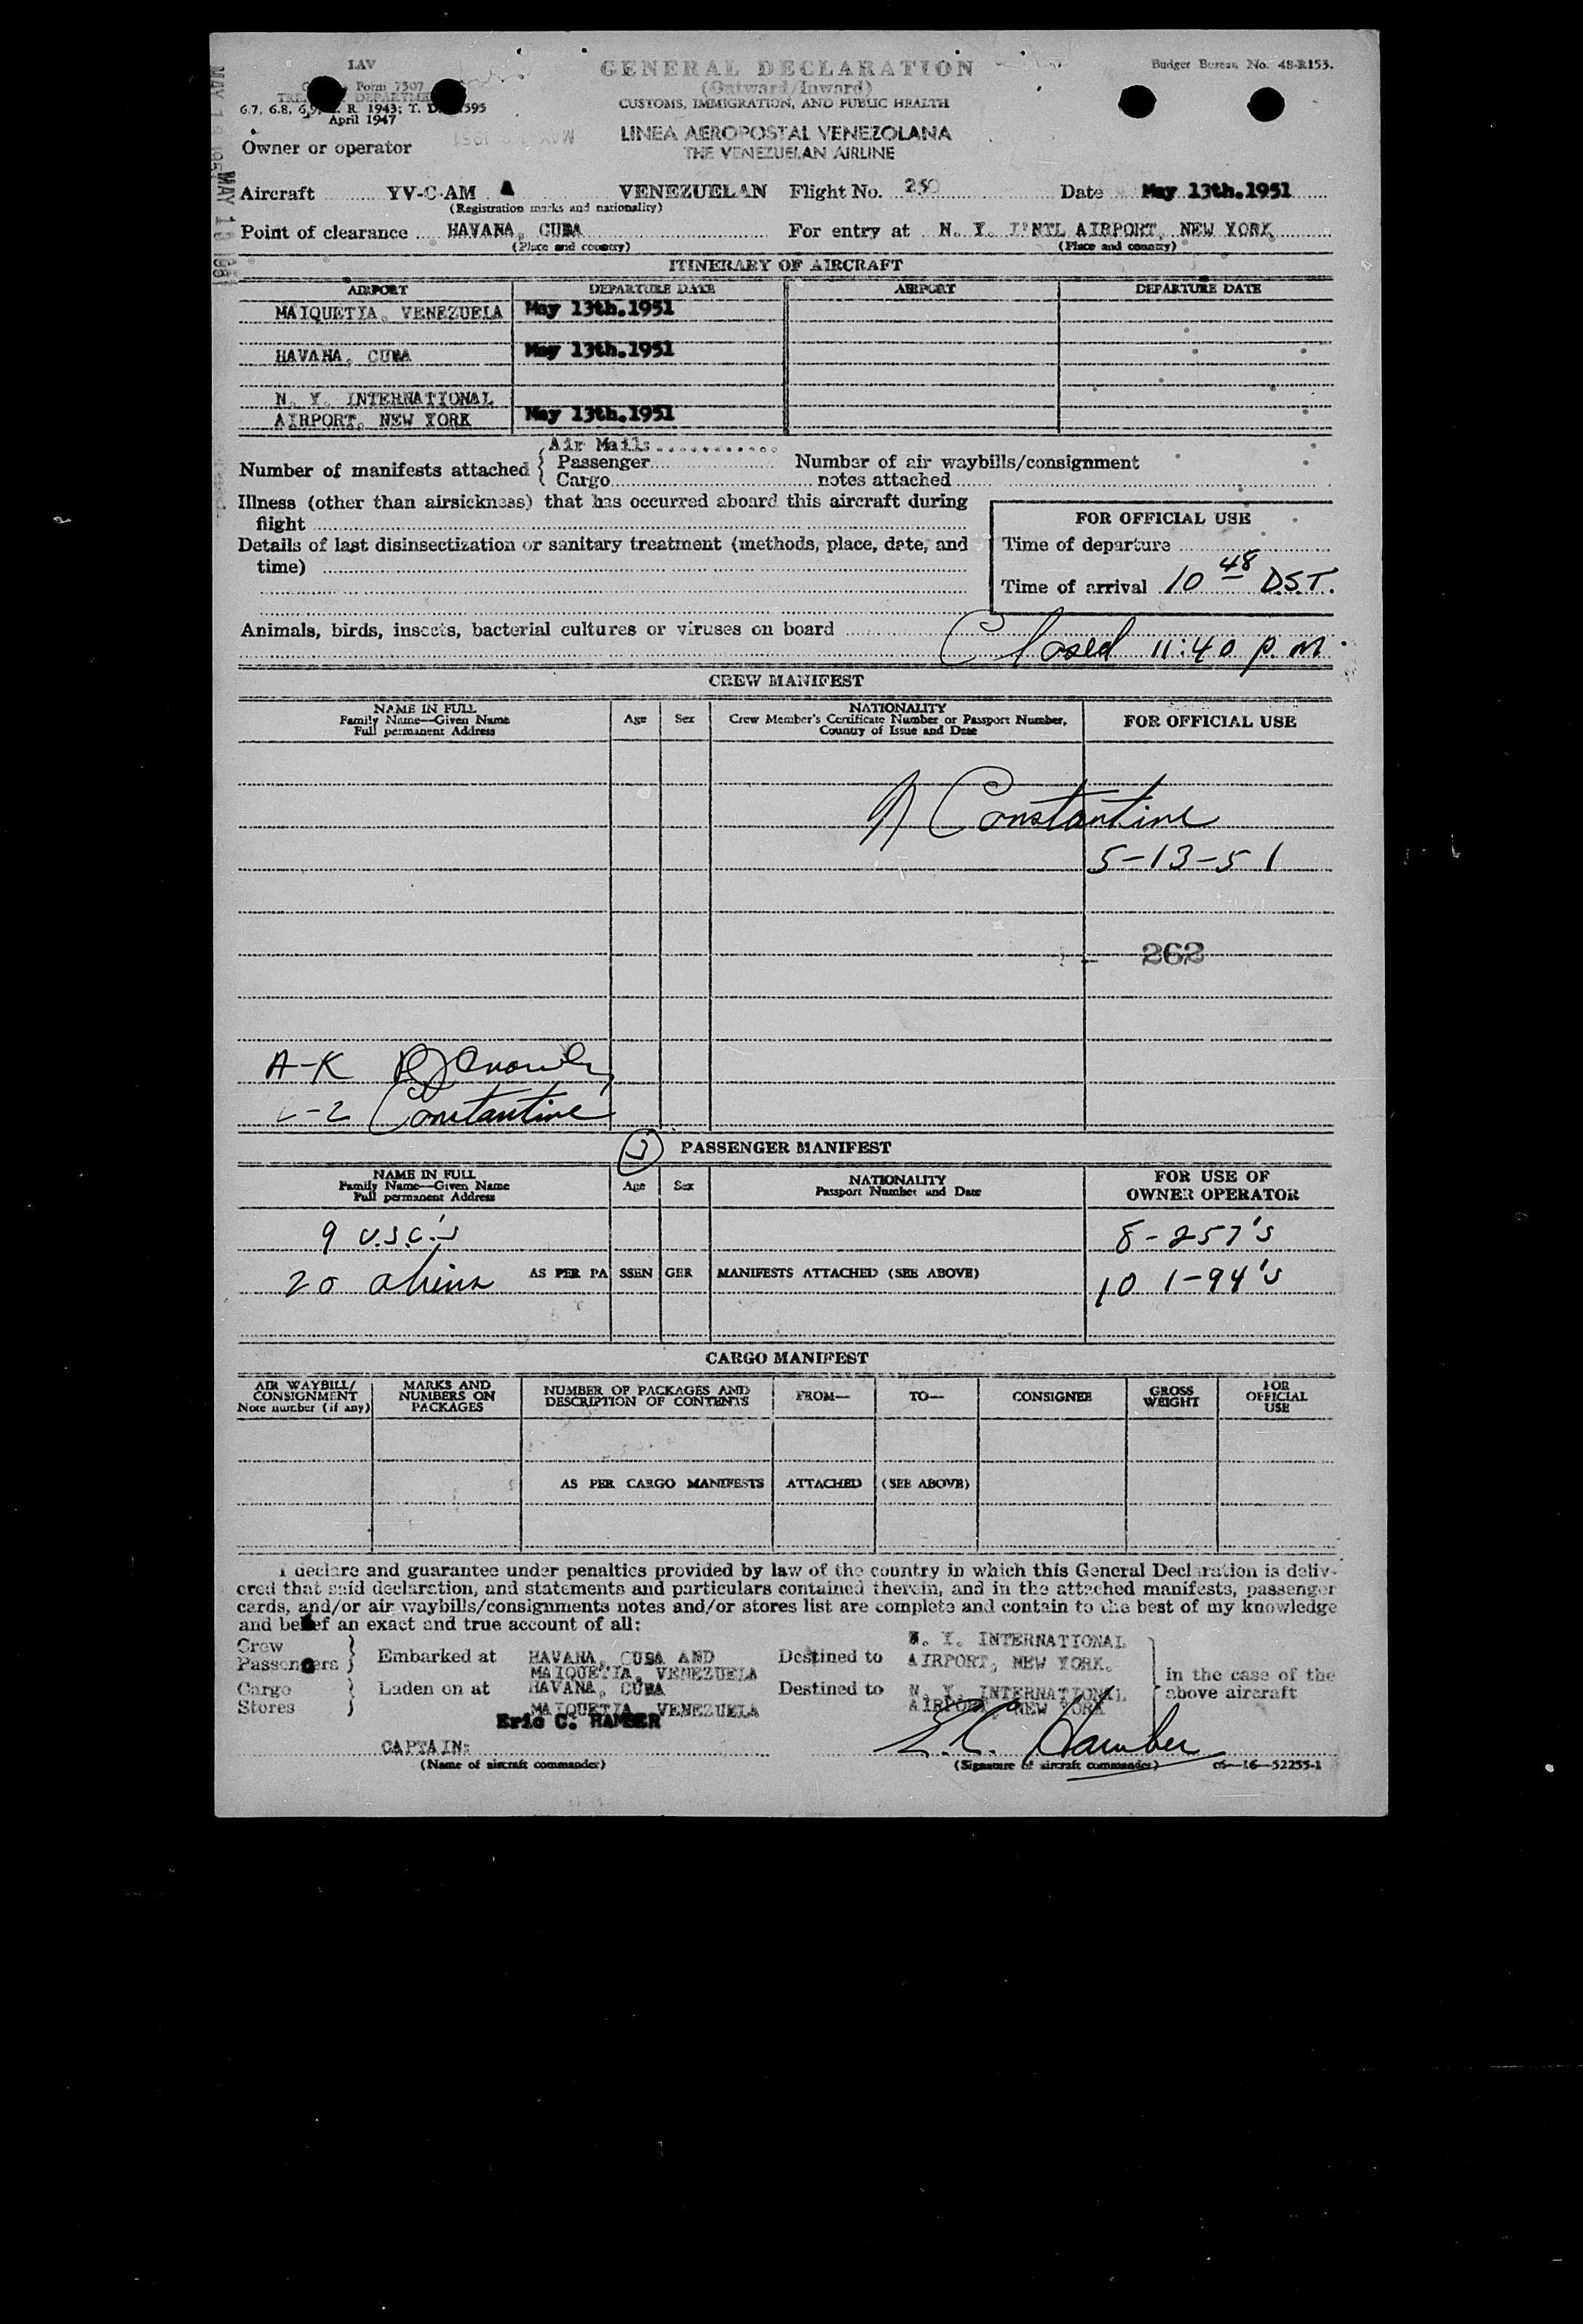 LAV
Form 7507
6.7, 6.8, 6.9, R. 1943; T. D. 595
April 1947
GENERAL DECLARATION
(Outward/Inward)
CUSTOMS, IMMIGRATION, AND PUBLIC HEALTH
Budget Bureau No. 48-R153.
LINEA AEROPOSTAL VENEZOLANA
THE VENEZUELAN AIRLINE
Owner or operator
Aircraft YV-C-AM A VENEZUELAN Flight No. 250 Date May 13th.1951
(Registration marks and nationality)
Point of clearance HAVANA, CUBA For entry at N. Y. I'NTL AIRPORT, NEW YORK
(Place and country) (Place and country)
ITINERARY OF AIRCRAFT
AIRPORT DEPARTURE DATE AIRPORT DEPARTURE DATE
MAIQUETIA, VENEZUELA May 13th.1951
HAVANA, CUBA May 13th.1951
N. Y. INTERNATIONAL
AIRPORT, NEW YORK May 13th.1951
Air Mail:
Number of manifests attached Passenger Number of air waybills/consignment
Cargo notes attached
Illness (other than airsickness) that has occurred aboard this aircraft during
flight
Details of last disinsectization or sanitary treatment (methods, place, date, and
time)
FOR OFFICIAL USE
Time of departure
Time of arrival 10 48 D.S.T.
Animals, birds, insects, bacterial cultures or viruses on board
Closed 11:40 p.m.
CREW MANIFEST
NAME IN FULL
Family Name—Given Name
Full permanent Address
Age Sex
NATIONALITY
Crew Member's Certificate Number or Passport Number,
Country of Issue and Date
FOR OFFICIAL USE
Constantine
5-13-51
262
A-K
Constantine
PASSENGER MANIFEST
NAME IN FULL
Family Name—Given Name
Full permanent Address
Age Sex
NATIONALITY
Passport Number and Date
FOR USE OF
OWNER OPERATOR
9 U.S.C.'s 8-257's
20 aliens AS PER PASSENGER MANIFESTS ATTACHED (SEE ABOVE) 10 1-94's
CARGO MANIFEST
AIR WAYBILL/
CONSIGNMENT
Note number (if any)
MARKS AND
NUMBERS ON
PACKAGES
NUMBER OF PACKAGES AND
DESCRIPTION OF CONTENTS
FROM— TO— CONSIGNEE
GROSS
WEIGHT
FOR
OFFICIAL
USE
AS PER CARGO MANIFESTS ATTACHED (SEE ABOVE)
I declare and guarantee under penalties provided by law of the country in which this General Declaration is deliv-
ered that said declaration, and statements and particulars contained therein, and in the attached manifests, passenger
cards, and/or air waybills/consignments notes and/or stores list are complete and contain to the best of my knowledge
and belief an exact and true account of all:
Crew
Passengers
Embarked at HAVANA, CUBA AND
MAIQUETIA, VENEZUELA
Destined to N. Y. INTERNATIONAL
AIRPORT, NEW YORK.
Cargo
Stores
Laden on at HAVANA, CUBA
MAIQUETIA VENEZUELA
Destined to N. Y. INTERNATIONAL
AIRPORT, NEW YORK
in the case of the
above aircraft
Eric C. HAMBER
CAPTAIN: E.C. Hamber
(Name of aircraft commander) (Signature of aircraft commander) 16—52255-1